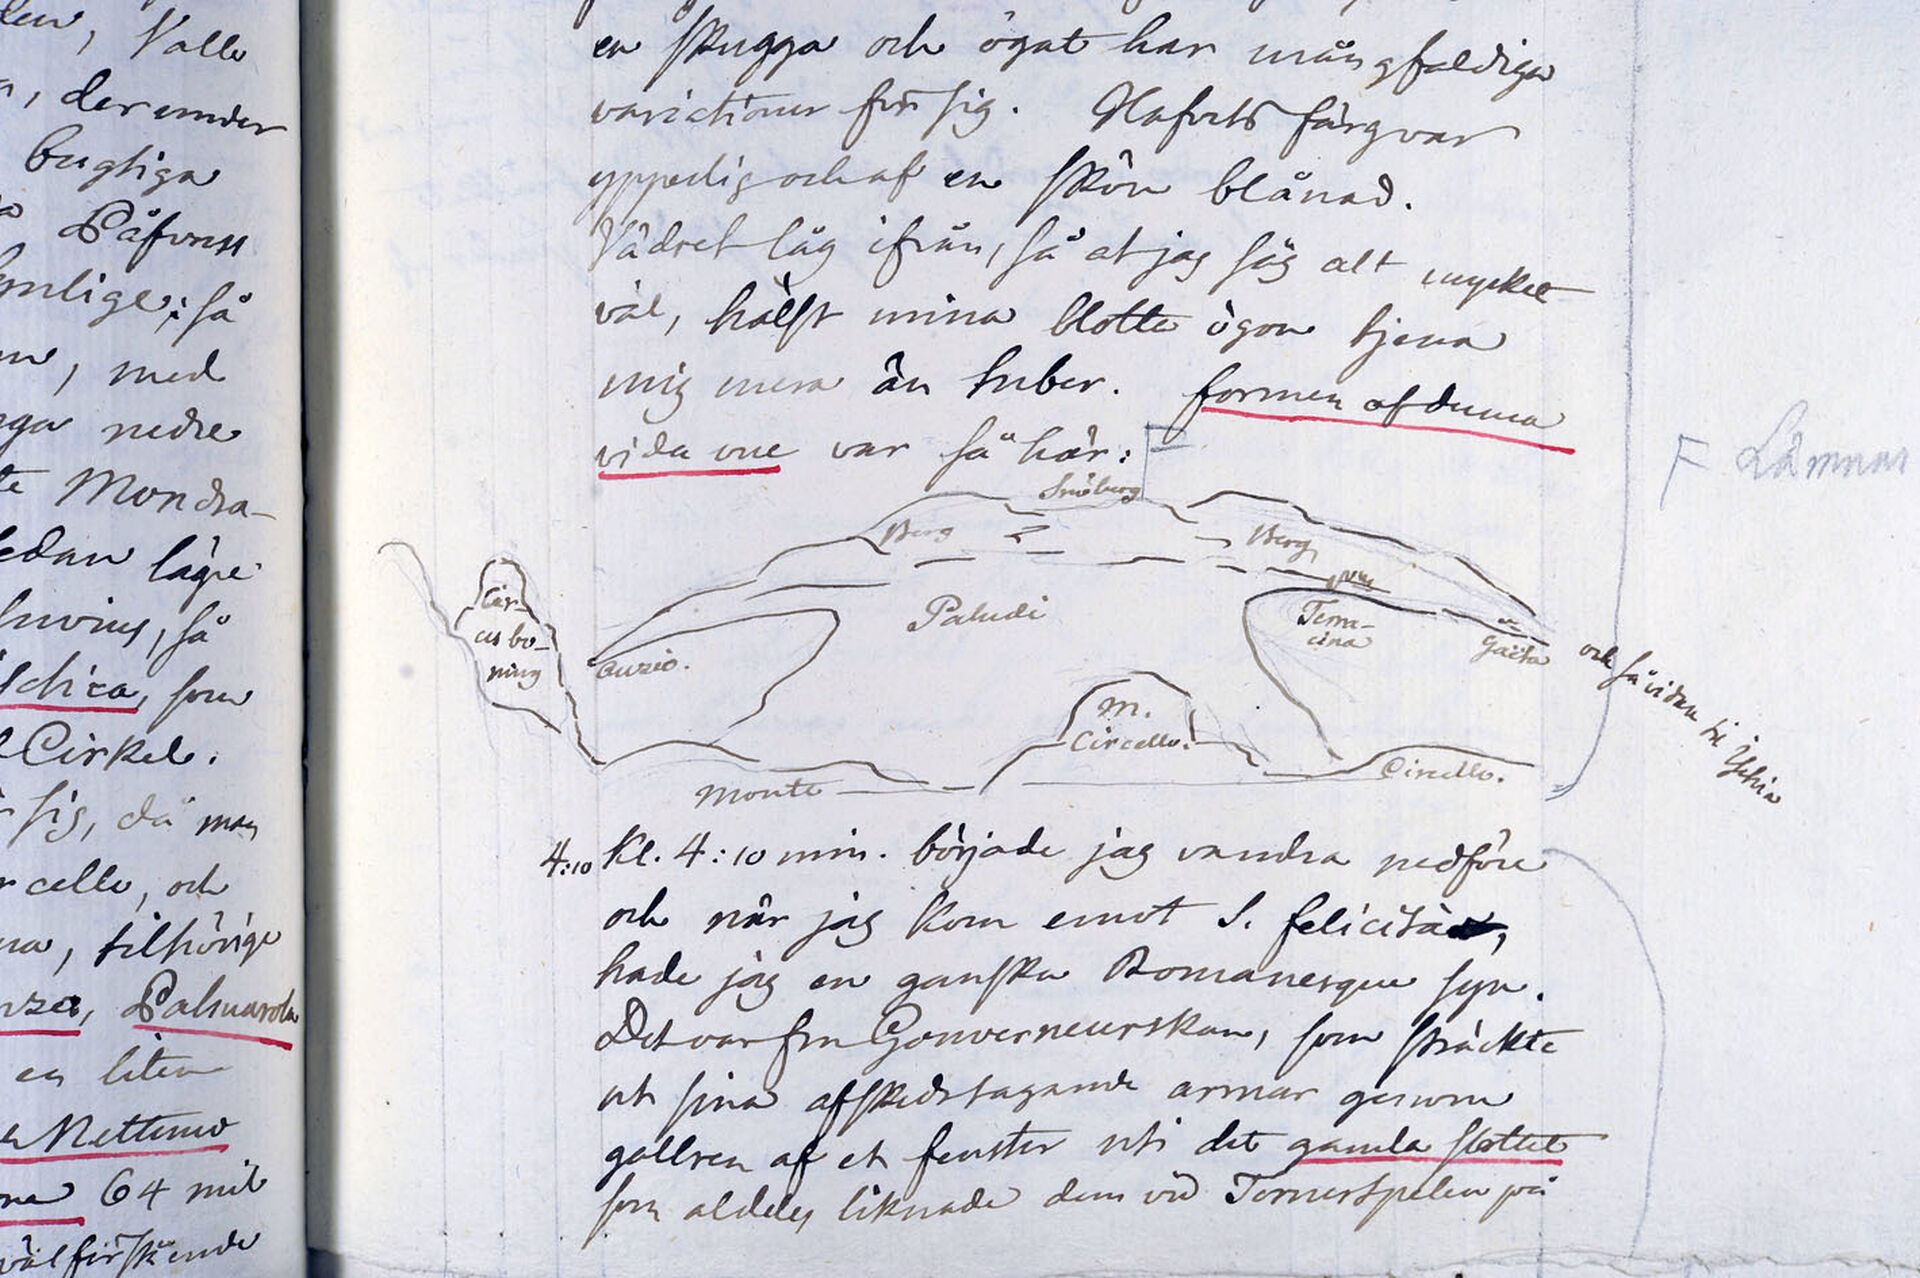 len, Valle
, der under
bugtiga
Påfvens
mlige; så
, med
nedre
te Mondra-
edan lägre
suvius, så
schia, som
Cirkel.
sig, då man
rcello, och
na, tilhörige
nza, Palmarola
en liten
Nettuno
64 mil
väl förstående
en skugga och ögat har mångfaldiga
variationer för sig. Hafvets färg var
yppelig och af en skön blånad.
Vädret låg ifrån, så at jag såg alt mycket
väl, hälst mina blotta ögon tjena
mig mera än tuber. formen af denna
vida vue var så här:
F Lämnas
Snöberg
Berg
Berg
Cir-
ces bo-
ning
Paludi
Terra-
cina
Anzio.
Gaëta
och så vidare til Ischia
M.
Circello.
Monte
Circello.
4:10 Kl. 4:10 min. började jag vandra nedföre
och när jag kom emot S. felicità,
hade jag en ganska Romanesque syn.
Det var fru Gouverneurskan, som sträckte
ut sina afskedstagande armar genom
gallren af et fenster uti det gamla slottet
som aldeles liknade dem vid Tornerspelen på